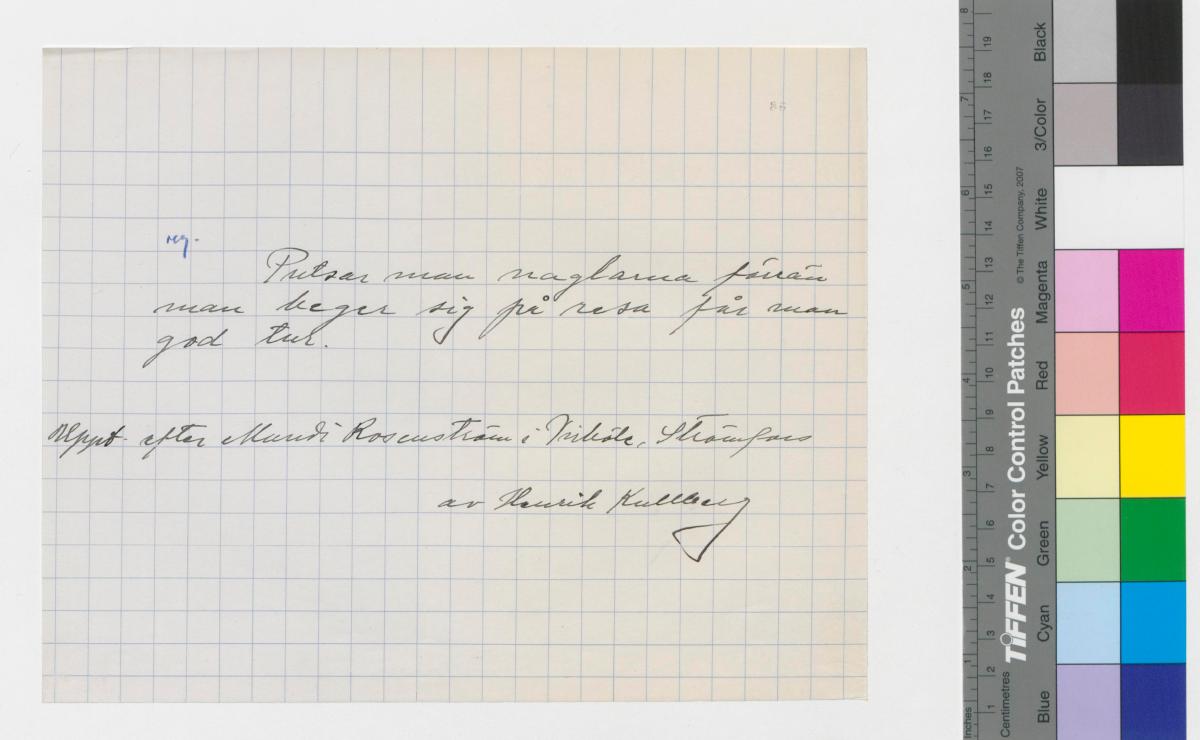 86
reg.
Putsar man naglarna förrän
man beger sig på resa får man
god tur.
Uppt. efter Mundi Rosenström i Virböle, Strömfors
av Henrik Kullberg
Inches 1 2 3 4 5 6 7 8
Centimetres 1 2 3 4 5 6 7 8 9 10 11 12 13 14 15 16 17 18 19
TIFFEN® Color Control Patches © The Tiffen Company, 2007
Blue Cyan Green Yellow Red Magenta White 3/Color Black